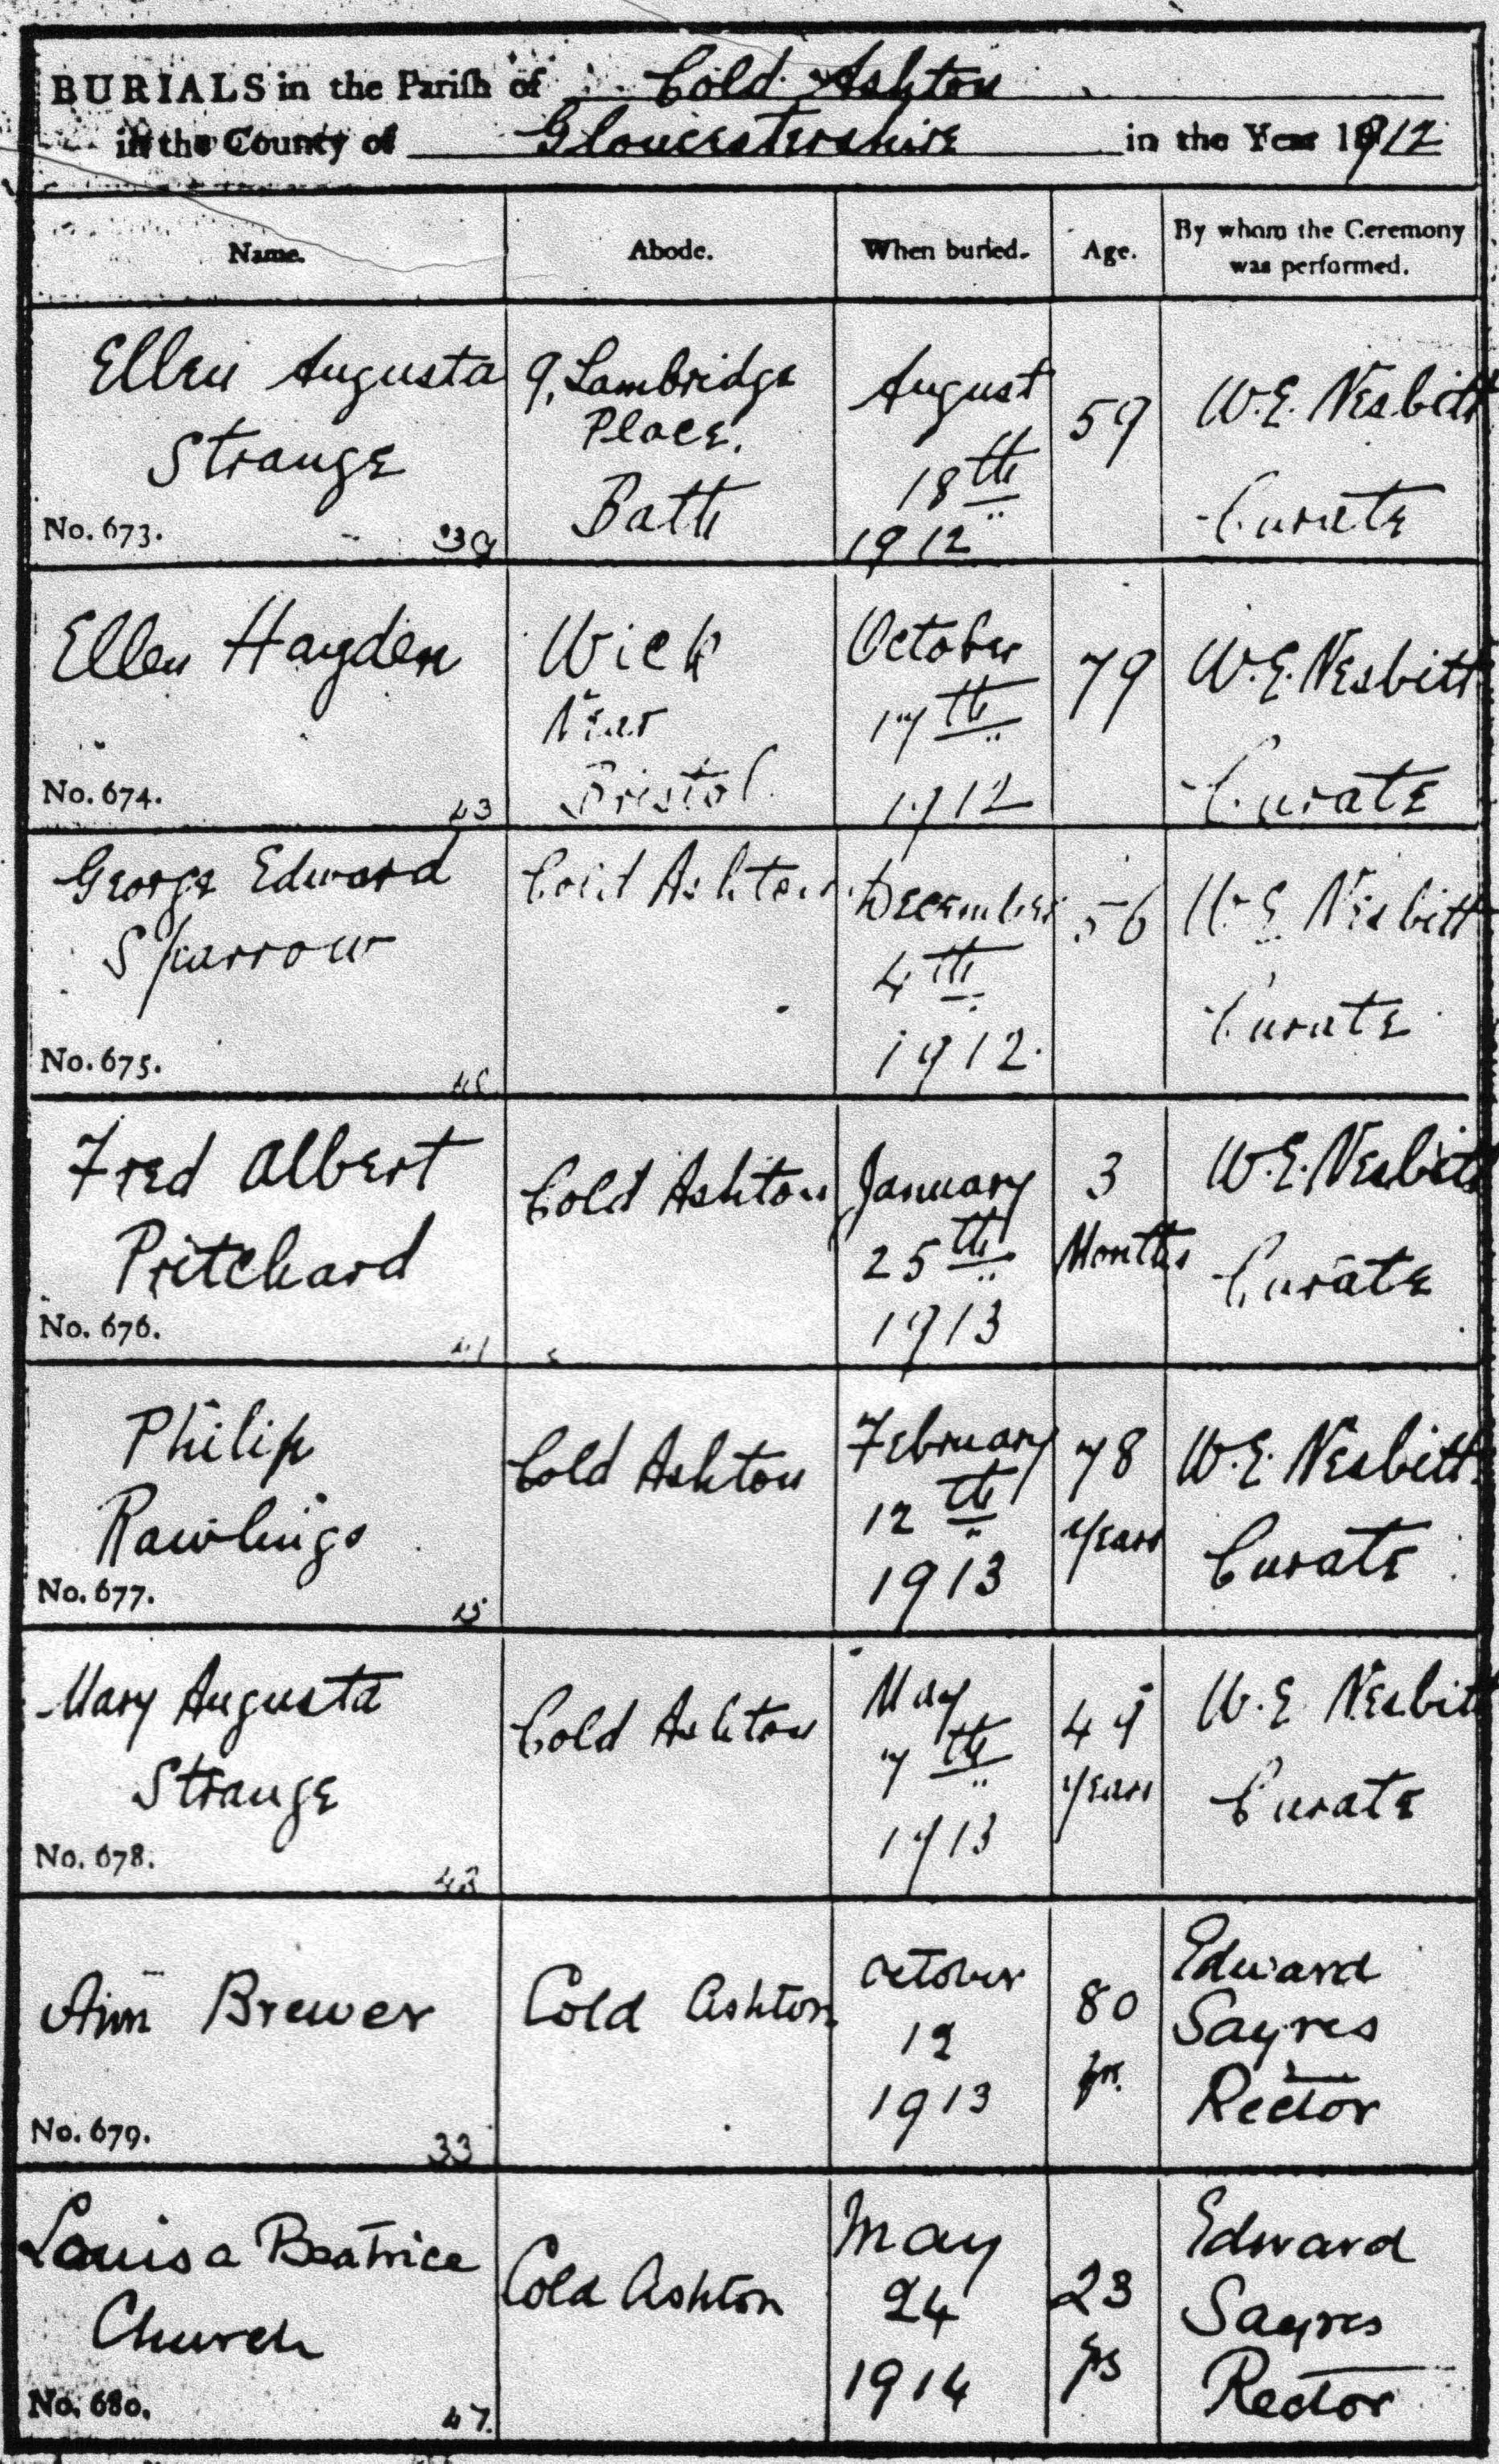 BURIALS in the Parish of Cold Ashton
in the County of Gloucestershire in the Year 1912
Name. Abode. When buried. Age. By whom the Ceremony was performed.
Ellen Augusta Strange
No. 673. 39
9, Lambridge
Place.
Bath
August
18th
1912
59
W.E. Nesbitt
Curate
Ellen Hayden
No. 674. 43
Wick
Near
Bristol
October
17th
1912
79
W.E. Nesbitt
Curate
George Edward
Sparrow
No. 675.
Cold Ashton
December
4th
1912.
56
W E Nesbitt
Curate
Fred Albert
Pritchard
No. 676. 41
Cold Ashton
January
25th
1913
3
Months
W.E. Nesbitt
Curate
Philip
Rawlings
No. 677. 15
Cold Ashton
February
12th
1913
78
years
W.E. Nesbitt
Curate
Mary Augusta
Strange
No. 678.
Cold Ashton
May
7th
1913
years
W.E. Nesbitt
Curate
Ann Brewer
No. 679. 33
Cold Ashton
October
12
1913
80
yrs.
Edward
Sayres
Rector
Louisa Beatrice
Church
No. 680. 47.
Cold Ashton
May
24
1914
23
yrs
Edward
Sayres
Rector